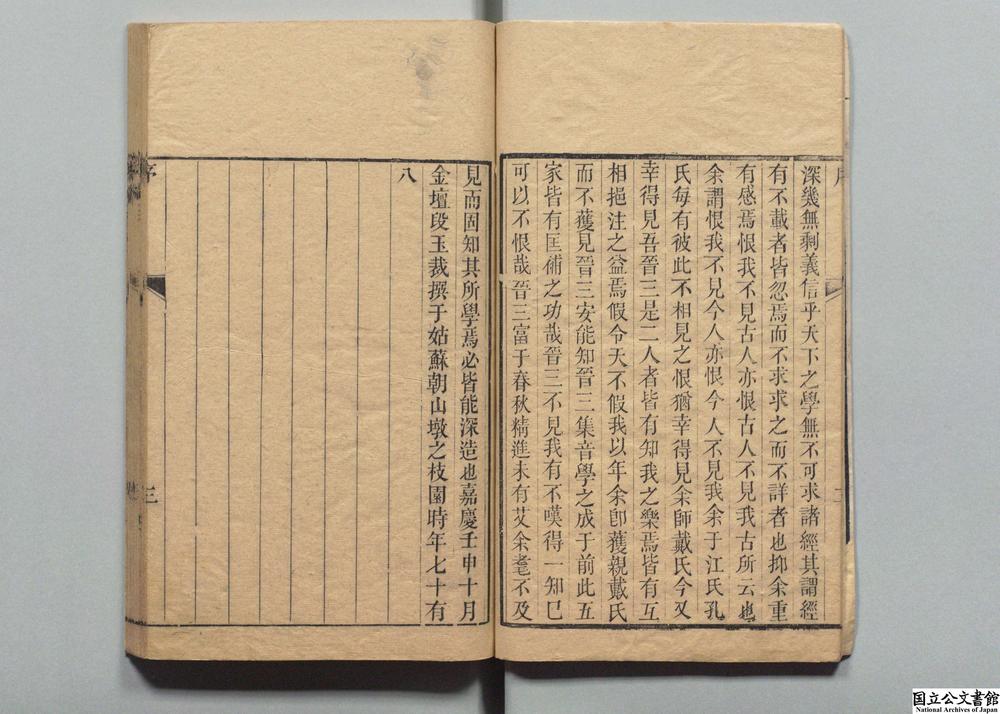 深幾無剩義信乎天下之學無不可求諸經其謂經
有不載者皆忽焉而不求求之而不詳者也抑余重
有感焉恨我不見古人亦恨古人不見我古所云也
余謂恨我不見今人亦恨今人不見我余于江氏孔
氏每有彼此不相見之恨猶幸得見余師戴氏今又
幸得見吾晉三是二人者皆有知我之樂焉皆有互
相挹注之益焉假令天不假我以年余卽獲親戴氏
而不獲見晉三安能知晉三集音學之成于前此五
家皆有匡術之功哉晉三不見我有不嘆得一知已
可以不恨哉晉三富于春秋精進未有艾余耄不及
見而固知其所學焉必皆能深造也嘉慶壬申十月
金壇段玉裁撰于姑蘇朝山墩之枝園時年七十有
八
序
三
国立公文書館
National Archives of Japan